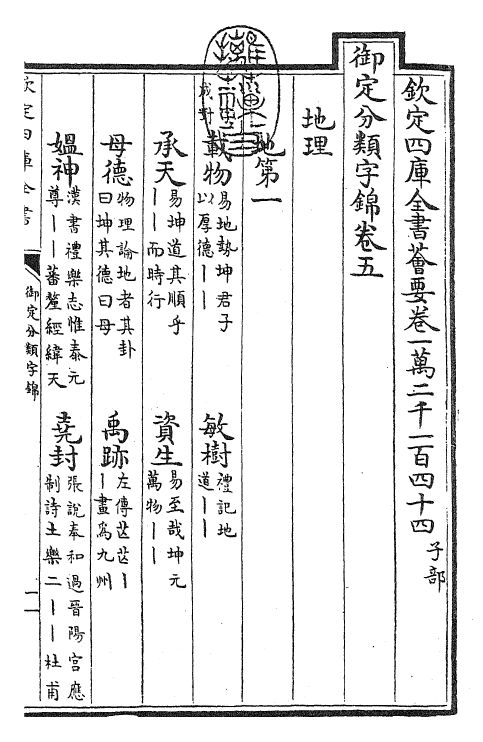 欽定四庫全書薈要卷一萬二千一百四十四 子部
御定分類字錦卷五
地理
地第一
成對
載物 易地勢坤君子以厚德丨丨
敏樹 禮記地道丨丨
承天 易坤道其順乎丨丨而時行
資生 易至哉坤元萬物丨丨
母德 物理論地者其卦曰坤其德曰母
禹跡 左傳芒芒丨丨畫為九州
媼神 漢書禮樂志惟泰元尊丨丨蕃釐經緯天
堯封 張說奉和過晉陽宮應制詩土樂二丨丨杜甫
欽定四庫全書
御定分類字錦
一